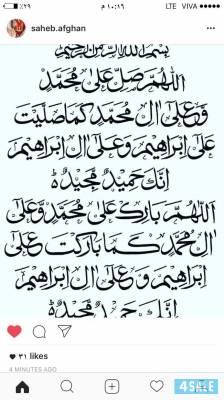 ٪٢٩ ١٠:١٦ م LTE VIVA
saheb.afghan
بسم الله الرحمن الرحيم
اللهم صل على محمد
وعلى ال محمد كما صليت
على ابراهيم وعلى ال ابراهيم
انك حميد مجيد
اللهم بارك على محمد وعلى
ال محمد كما باركت على
ابراهيم وعلى ال ابراهيم
انك حميد مجيد
٣١ likes
4 MINUTES AGO
4SALE